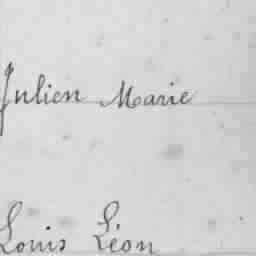 Julien Marie
Louis Léon